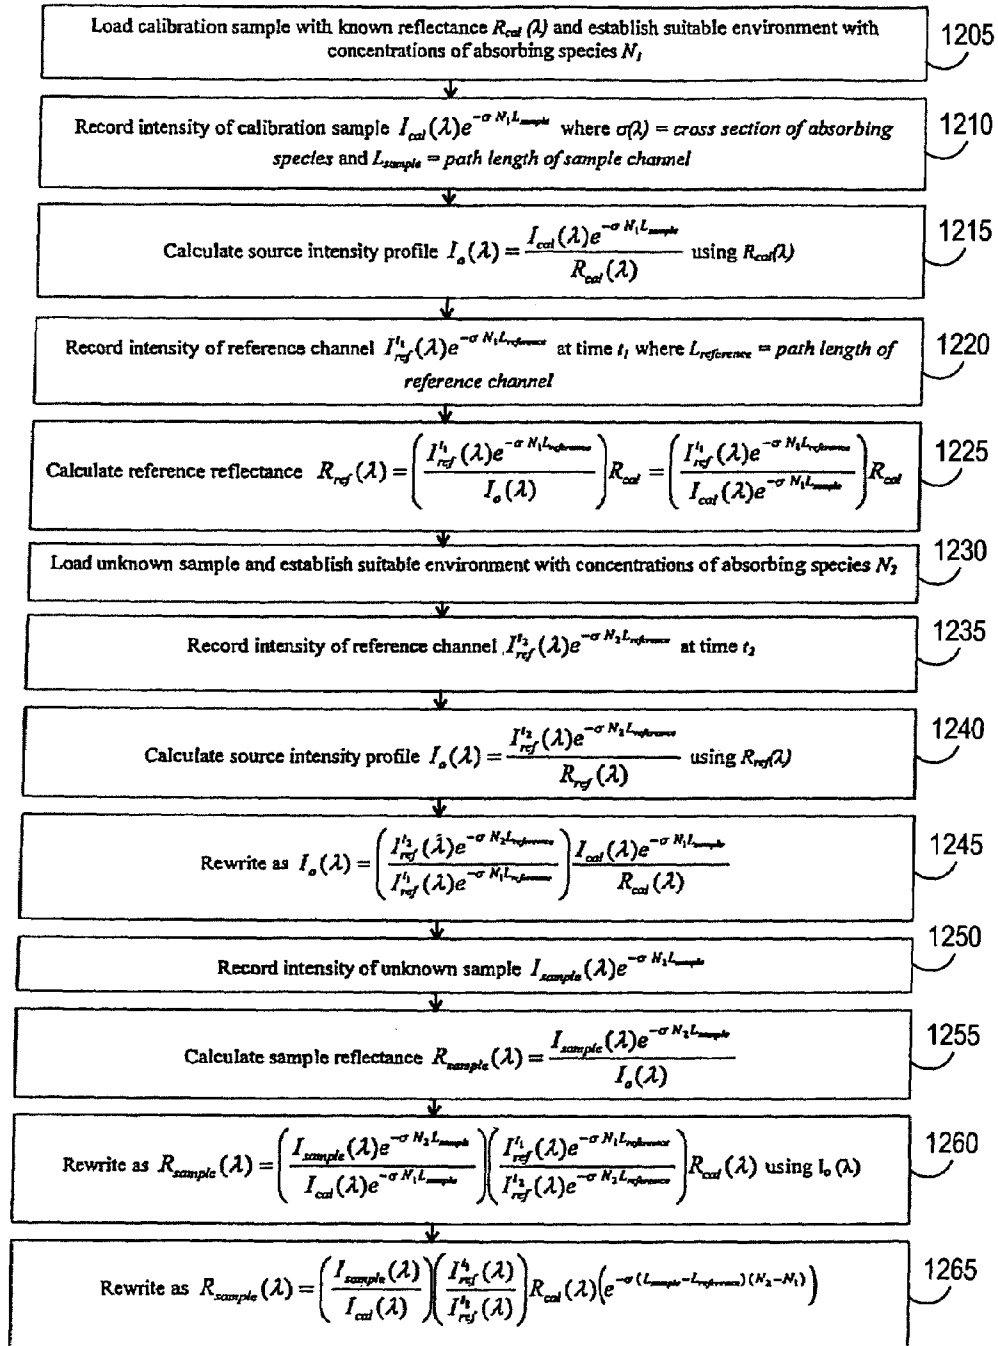 Load calibration sample with known reflectance R_cal (λ) and establish suitable environment with
concentrations of absorbing species N_1
1205
Record intensity of calibration sample I_cal(λ)e^{-σ N_1 L_sample} where σ(λ) = cross section of absorbing
species and L_sample = path length of sample channel
1210
Calculate source intensity profile I_o(λ) = I_cal(λ)e^{-σ N_1 L_sample} / R_cal(λ) using R_cal(λ)
1215
Record intensity of reference channel I_ref^{t_1}(λ)e^{-σ N_1 L_reference} at time t_1 where L_reference = path length of
reference channel
1220
Calculate reference reflectance R_ref(λ) = (I_ref^{t_1}(λ)e^{-σ N_1 L_reference} / I_o(λ)) R_cal = (I_ref^{t_1}(λ)e^{-σ N_1 L_reference} / I_cal(λ)e^{-σ N_1 L_sample}) R_cal
1225
Load unknown sample and establish suitable environment with concentrations of absorbing species N_2
1230
Record intensity of reference channel I_ref^{t_2}(λ)e^{-σ N_2 L_reference} at time t_2
1235
Calculate source intensity profile I_o(λ) = I_ref^{t_2}(λ)e^{-σ N_2 L_reference} / R_ref(λ) using R_ref(λ)
1240
Rewrite as I_o(λ) = (I_ref^{t_2}(λ)e^{-σ N_2 L_reference} / I_ref^{t_1}(λ)e^{-σ N_1 L_reference}) I_cal(λ)e^{-σ N_1 L_sample} / R_cal(λ)
1245
Record intensity of unknown sample I_sample(λ)e^{-σ N_2 L_sample}
1250
Calculate sample reflectance R_sample(λ) = I_sample(λ)e^{-σ N_2 L_sample} / I_o(λ)
1255
Rewrite as R_sample(λ) = (I_sample(λ)e^{-σ N_2 L_sample} / I_cal(λ)e^{-σ N_1 L_sample})(I_ref^{t_1}(λ)e^{-σ N_1 L_reference} / I_ref^{t_2}(λ)e^{-σ N_2 L_reference}) R_cal(λ) using I_o(λ)
1260
Rewrite as R_sample(λ) = (I_sample(λ) / I_cal(λ))(I_ref^{t_1}(λ) / I_ref^{t_2}(λ)) R_cal(λ)(e^{-σ (L_sample-L_reference)(N_2-N_1)})
1265